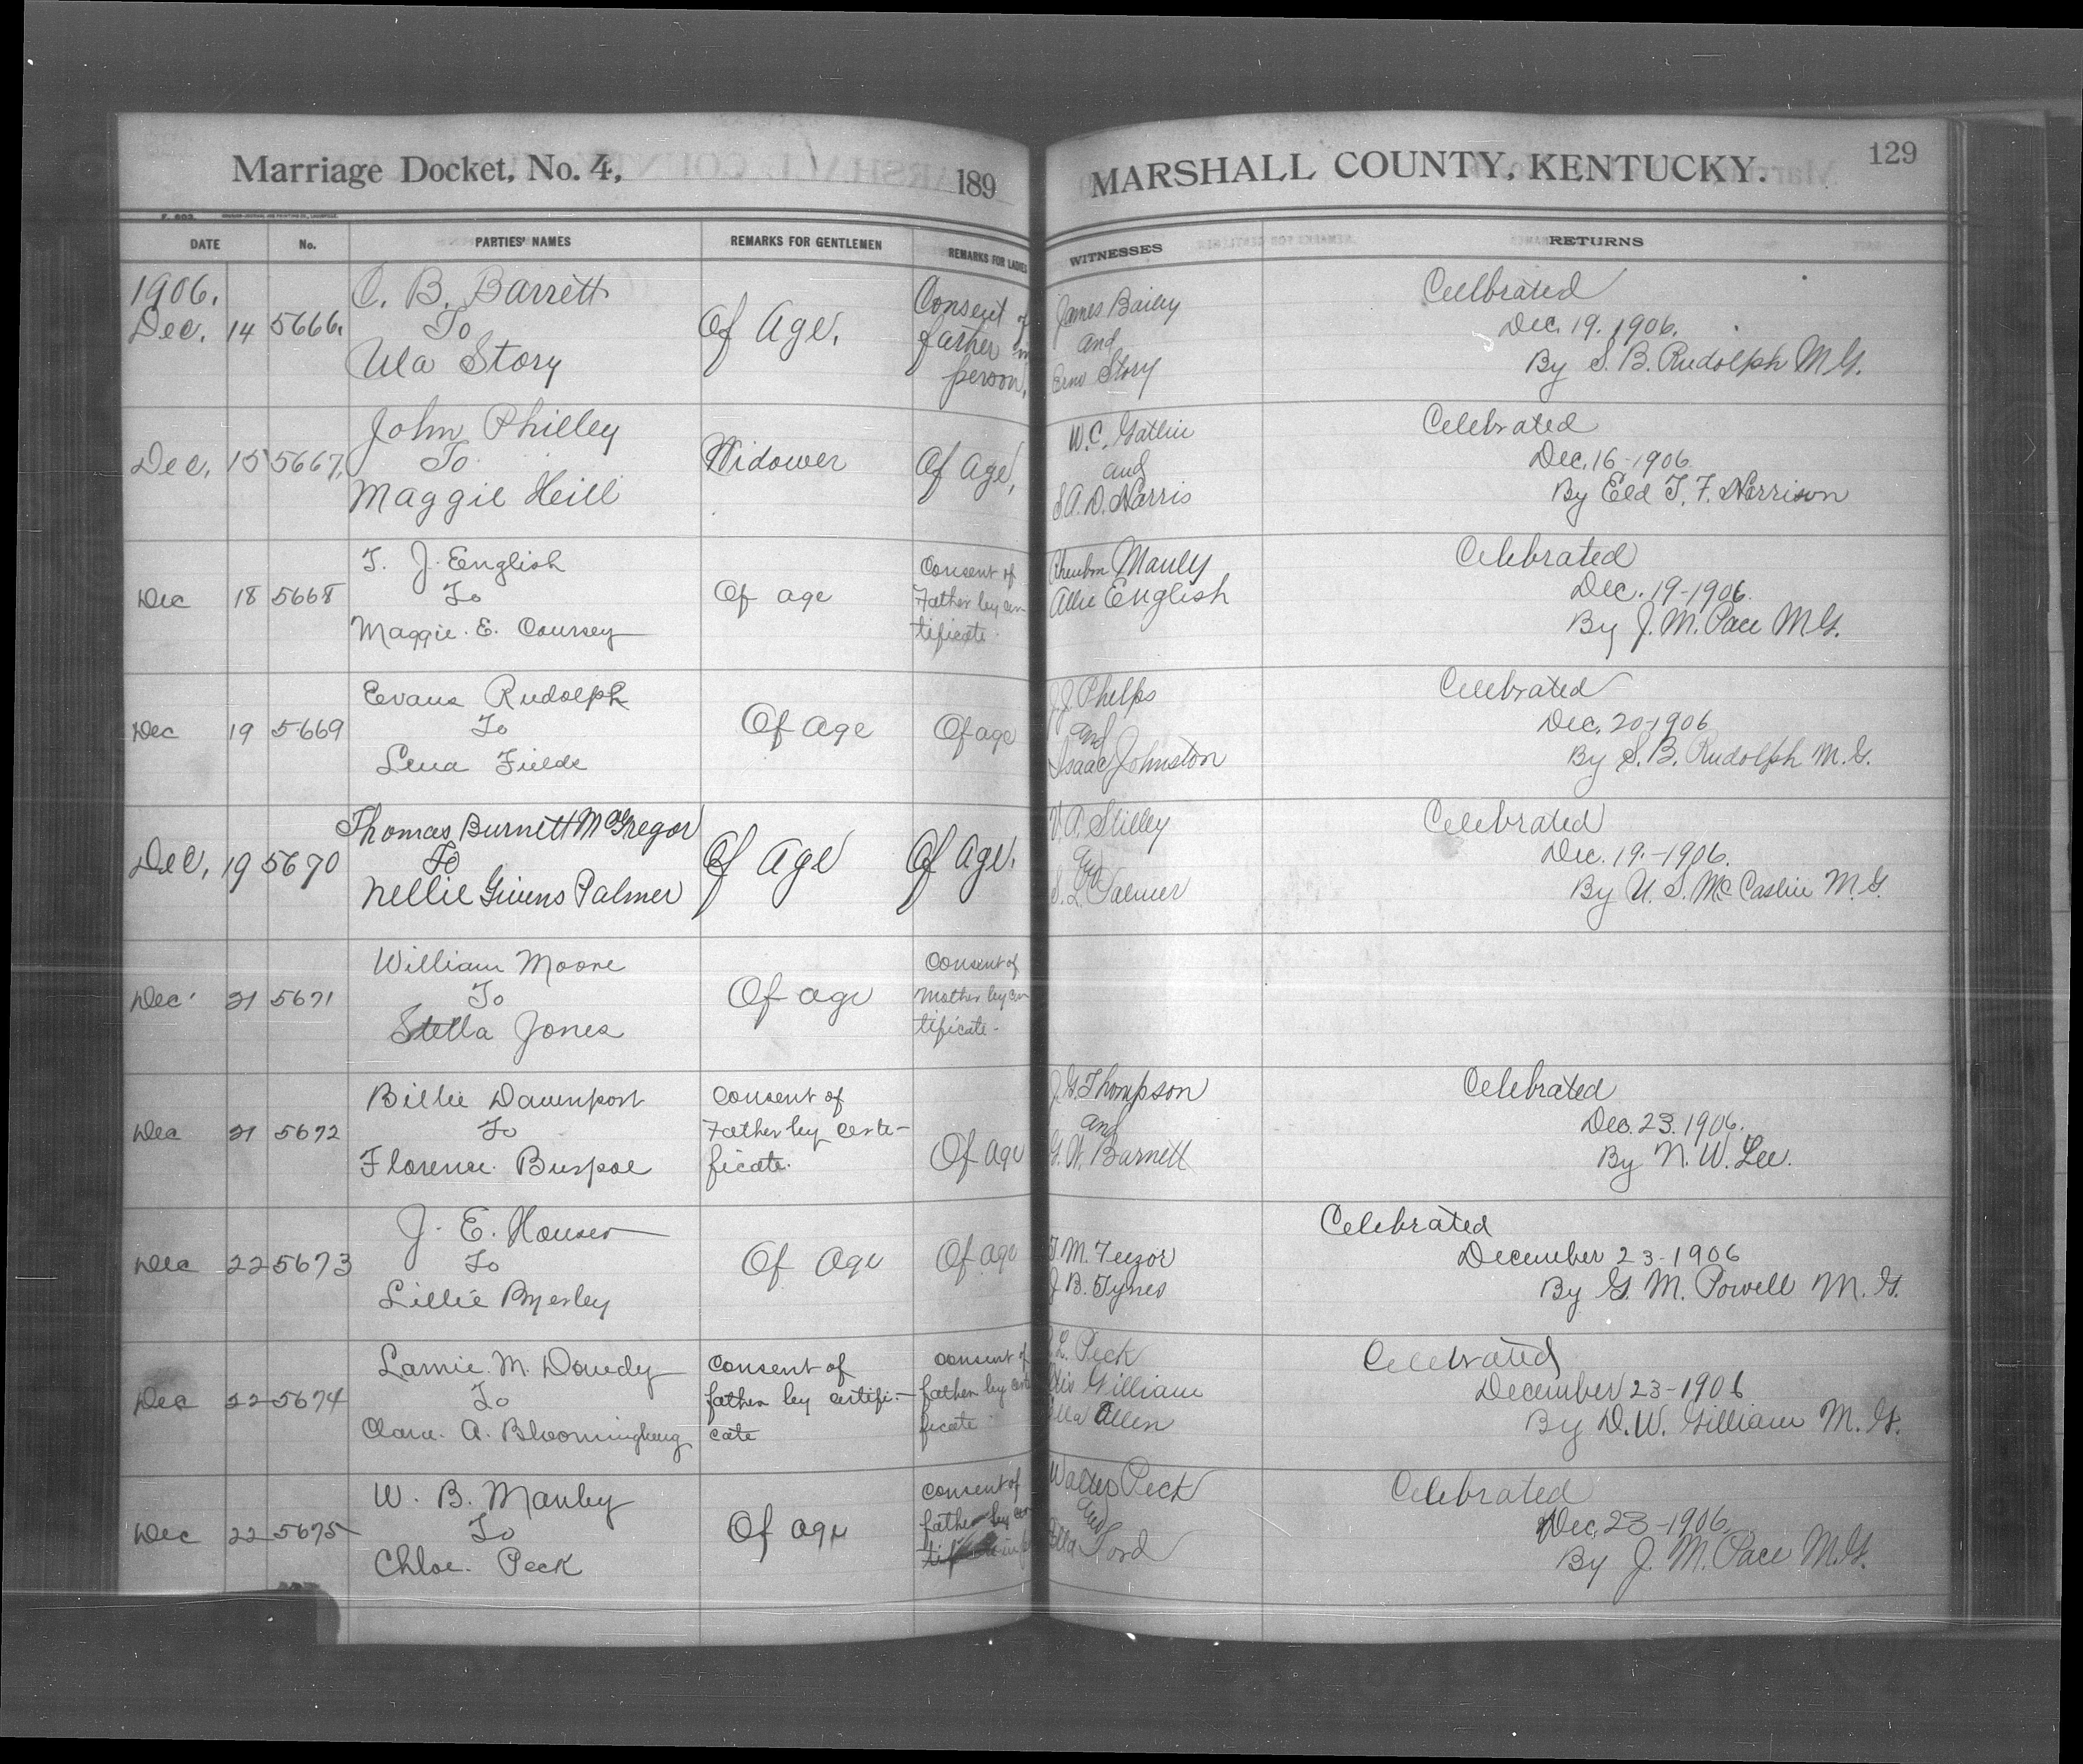 Marriage Docket, No. 4, 189
MARSHALL COUNTY, KENTUCKY. 129
DATE No. PARTIES' NAMES REMARKS FOR GENTLEMEN REMARKS FOR LADIES WITNESSES RETURNS
1906.
Dec. 14 5666.
C. B. Barrett
To
Ula Story
Of Age.
Consent of
father in
person.
James Bailey
and
Story
Celebrated
Dec. 19. 1906.
By S. B. Rudolph M.G.
Dec. 15 5667.
John Philley
To
Maggie Heill
Widower
Of Age,
W. C. Gatlin
and
S. A. D. Harris
Celebrated
Dec. 16-1906
By Eld T. F. Harrison
Dec 18 5668
T. J. English
To
Maggie. E. Coursey
Of age
Consent of
Father by cer-
tificate.
Manly
Allie English
Celebrated
Dec. 19-1906.
By J. M. Pace M.G.
Dec 19 5669
Evans Rudolph
To
Lena Fields
Of age
Of age
J. J. Phelps
and
Isaac Johnston
Celebrated
Dec. 20-1906
By S. B. Rudolph M.G.
Dec. 19 5670
Thomas Burnett McGregor
To
Nellie Givens Palmer
Of Age
Of Age.
V. A. Stilley
and
S. L. Palmer
Celebrated
Dec. 19.-1906.
By U. S. McCaslin M.G.
Dec. 21 5671
William Moore
To
Stella Jones
Of age
Consent of
Mother by cer-
tificate-
Dec 21 5672
Billie Davenport
To
Florence. Burpoe
Consent of
Father by certi-
ficate.
Of age
J. G. Thompson
and
G. W. Barnett
Celebrated
Dec. 23. 1906.
By N. W. Lee.
Dec 22 5673
J. E. Houser
To
Lillie Byerley
Of age
Of age
T. M. Feezor
J. B. Tynes
Celebrated
December 23-1906
By G. M. Powell M.G.
Dec 22 5674
Larnie. M. Dowdy
To
Clara. A. Bloomingburg
Consent of
father by certifi-
cate
Consent of
father by certi
ficate
L. Peck
Gilliam
Ella Allen
Celebrated
December 23-1906
By D. W. Gilliam M.G.
Dec 22 5675
W. B. Manley
To
Chloe. Peck
Of age
Consent of
father by cer
Walter Peck
and
Ford
Celebrated
Dec. 23-1906.
By J. M. Pace M.G.